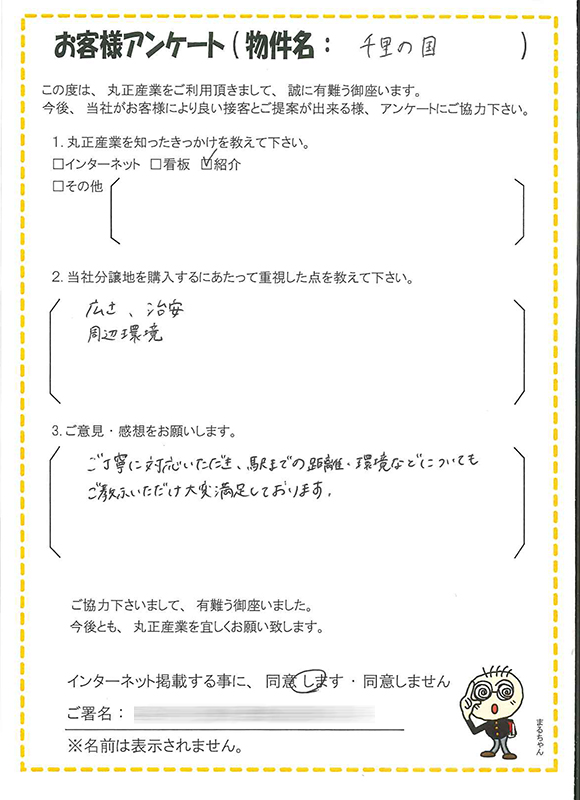 お客様アンケート(物件名: 千里の国 )
この度は、丸正産業をご利用頂きまして、誠に有難う御座います。
今後、当社がお客様により良い接客とご提案が出来る様、アンケートにご協力下さい。
1. 丸正産業を知ったきっかけを教えて下さい。
□インターネット □看板 ☑紹介
□その他
2. 当社分譲地を購入するにあたって重視した点を教えて下さい。
広さ、治安
周辺環境
3. ご意見・感想をお願いします。
ご丁寧に対応いただき、駅までの距離・環境などについても
ご教示いただけ大変満足しております。
ご協力下さいまして、有難う御座いました。
今後とも、丸正産業を宜しくお願い致します。
インターネット掲載する事に、同意します・同意しません
ご署名:
※名前は表示されません。
まるちゃん